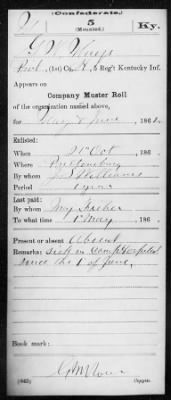 (Confederate.)
5 Ky.
(Mounted.)
G W
Pvt, (3d) Co. H, 5 Reg't Kentucky Inf.
Appears on
Company Muster Roll
of the organization named above,
for May & June, 186 2.
Enlisted:
When 21 Oct, 186 .
Where Prestonburg
By whom Williams
Period 1 year
Last paid:
By whom Maj Fisher
To what time 1 May, 186 .
Present or absent Absent
Remarks: Sick in Camp Hospital
since the 1 of June.
Book mark:
(642) Copyist.